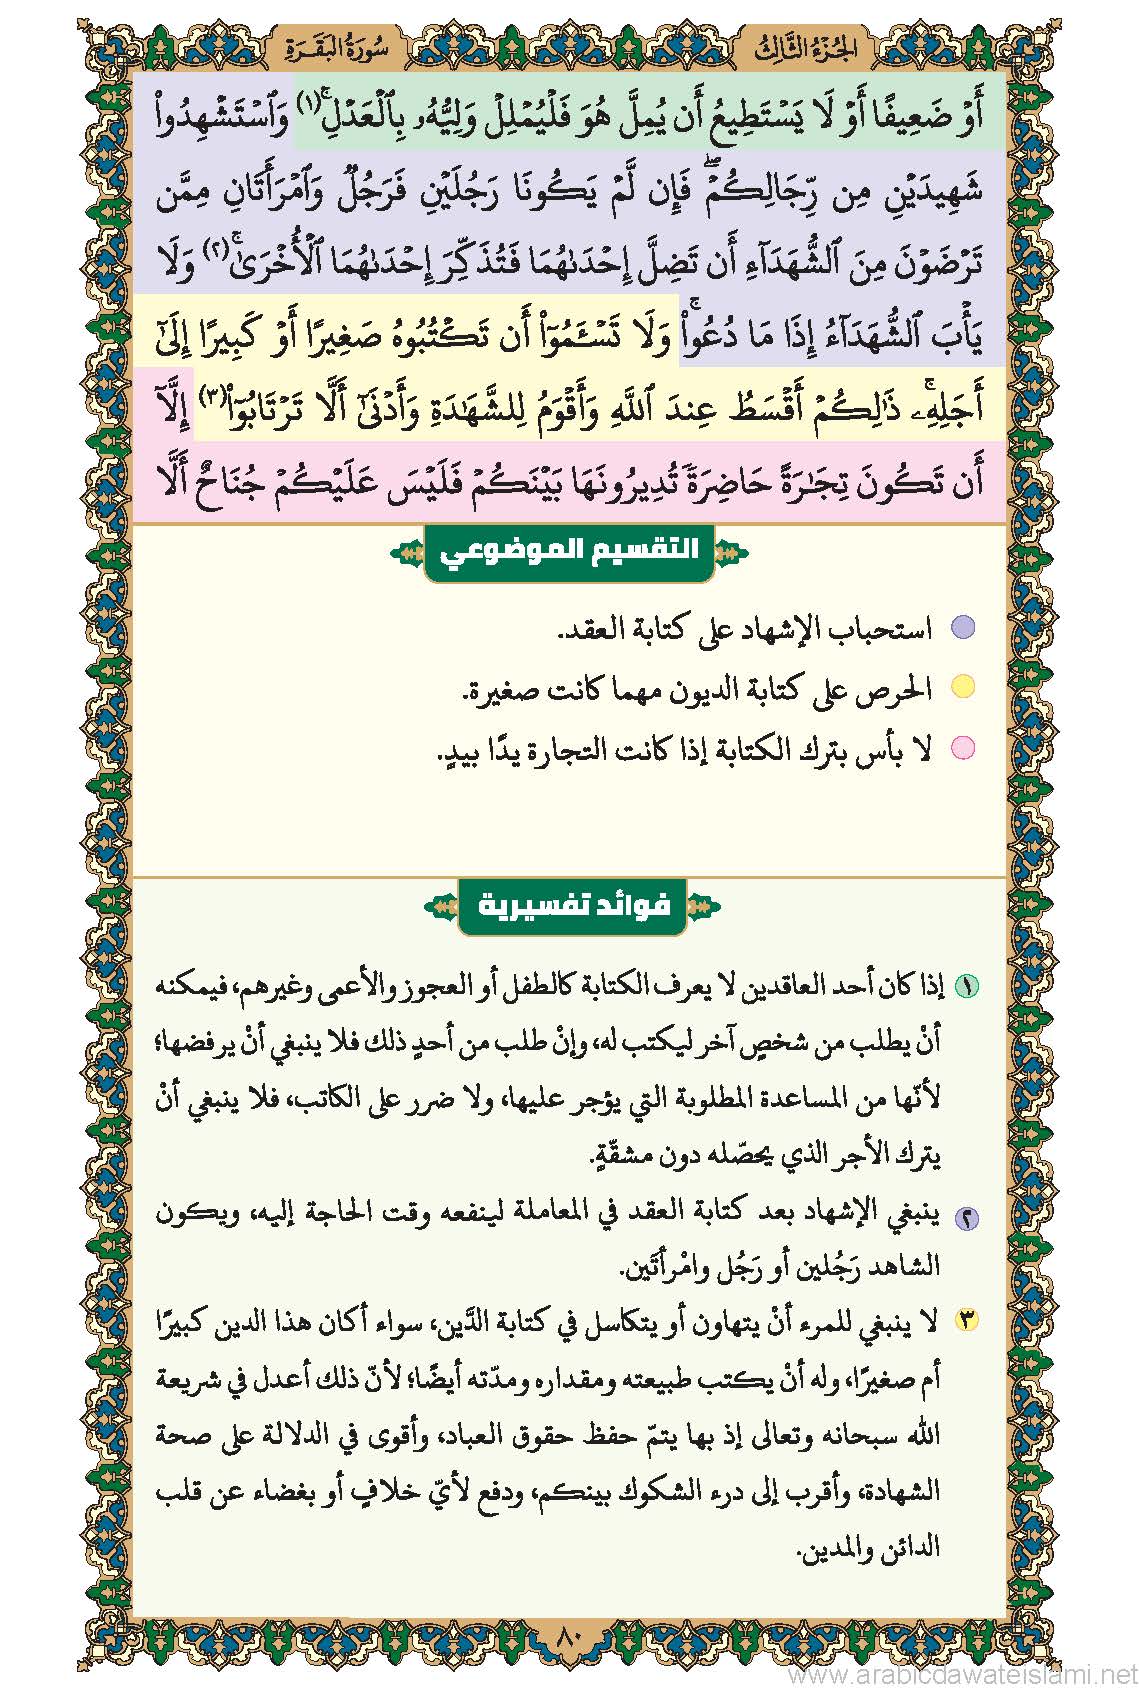 الجُزْءُ الثَّالِثُ
سُورَةُ البَقَرَةِ
أَوۡ ضَعِيفًا أَوۡ لَا يَسۡتَطِيعُ أَن يُمِلَّ هُوَ فَلۡيُمۡلِلۡ وَلِيُّهُۥ بِٱلۡعَدۡلِۚ(١) وَٱسۡتَشۡهِدُواْ
شَهِيدَيۡنِ مِن رِّجَالِكُمۡۖ فَإِن لَّمۡ يَكُونَا رَجُلَيۡنِ فَرَجُلٞ وَٱمۡرَأَتَانِ مِمَّن
تَرۡضَوۡنَ مِنَ ٱلشُّهَدَآءِ أَن تَضِلَّ إِحۡدَىٰهُمَا فَتُذَكِّرَ إِحۡدَىٰهُمَا ٱلۡأُخۡرَىٰۚ(٢) وَلَا
يَأۡبَ ٱلشُّهَدَآءُ إِذَا مَا دُعُواْۚ وَلَا تَسۡـَٔمُوٓاْ أَن تَكۡتُبُوهُ صَغِيرًا أَوۡ كَبِيرًا إِلَىٰٓ
أَجَلِهِۦۚ ذَٰلِكُمۡ أَقۡسَطُ عِندَ ٱللَّهِ وَأَقۡوَمُ لِلشَّهَٰدَةِ وَأَدۡنَىٰٓ أَلَّا تَرۡتَابُوٓاْ(٣) إِلَّآ
أَن تَكُونَ تِجَٰرَةً حَاضِرَةٗ تُدِيرُونَهَا بَيۡنَكُمۡ فَلَيۡسَ عَلَيۡكُمۡ جُنَاحٌ أَلَّا
التقسيم الموضوعي
استحباب الإشهاد على كتابة العقد.
الحرص على كتابة الديون مهما كانت صغيرة.
لا بأس بترك الكتابة إذا كانت التجارة يدًا بيدٍ.
فوائد تفسيرية
١ إذا كان أحد العاقدين لا يعرف الكتابة كالطفل أو العجوز والأعمى وغيرهم، فيمكنه
أنْ يطلب من شخصٍ آخر ليكتب له، وإنْ طلب من أحدٍ ذلك فلا ينبغي أنْ يرفضها؛
لأنّها من المساعدة المطلوبة التي يؤجر عليها، ولا ضرر على الكاتب، فلا ينبغي أنْ
يترك الأجر الذي يحصّله دون مشقّةٍ.
٢ ينبغي الإشهاد بعد كتابة العقد في المعاملة لينفعه وقت الحاجة إليه، ويكون
الشاهد رَجُلين أو رَجُل وامْرأتَين.
٣ لا ينبغي للمرء أنْ يتهاون أو يتكاسل في كتابة الدَّين، سواء أكان هذا الدين كبيرًا
أم صغيرًا، وله أنْ يكتب طبيعته ومقداره ومدّته أيضًا؛ لأنّ ذلك أعدل في شريعة
الله سبحانه وتعالى إذ بها يتمّ حفظ حقوق العباد، وأقوى في الدلالة على صحة
الشهادة، وأقرب إلى درء الشكوك بينكم، ودفع لأيّ خلافٍ أو بغضاء عن قلب
الدائن والمدين.
٨٠
www.arabicdawateislami.net